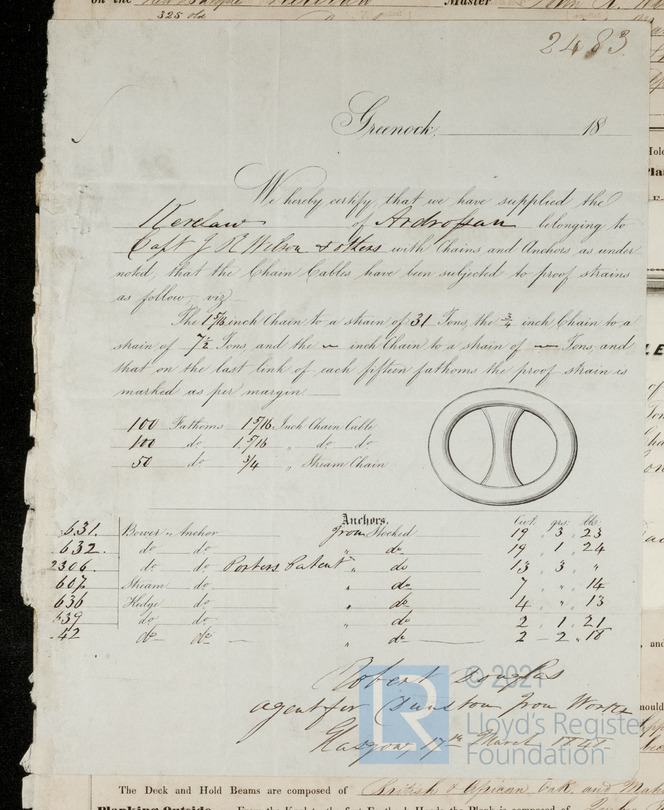 on the
Master
325 old
2483
Greenock 18
We hereby certify that we have supplied the
Kerelaw of Ardrossan belonging to
Capt J R Wilson & others with Chains and Anchors as under
noted, that the Chain Cables have been subjected to proof strains
as follow, viz
The 1 5/16 inch Chain to a strain of 31 Tons, the 3/4 inch Chain to a
strain of 7½ Tons, and the ~ inch Chain to a strain of — Tons, and
that on the last link of each fifteen fathoms the proof strain is
marked as per margin
100 Fathoms 1 5/16 Inch Chain Cable
100 do 1 5/16 " do do
50 do 3/4 " Stream Chain
Anchors. Cwt. qrs. lbs.
631. Bower Anchor Iron Stocked 19 . 3 . 23
632. do do " do 19 . 1 . 24
2306. do do Porters Patent " do 13 . 3 . "
607 Stream do " do 7 . " . 14
636 Kedge do " do 4 . " . 13
639 do do " do 2 . 1 . 21
42 do do — " do 2 - 2 . 18
Robert Douglas
agent for Iron Works
Glasgow, 17th March
© 202
Lloyd's Register
Foundation
The Deck and Hold Beams are composed of British & African Oak and